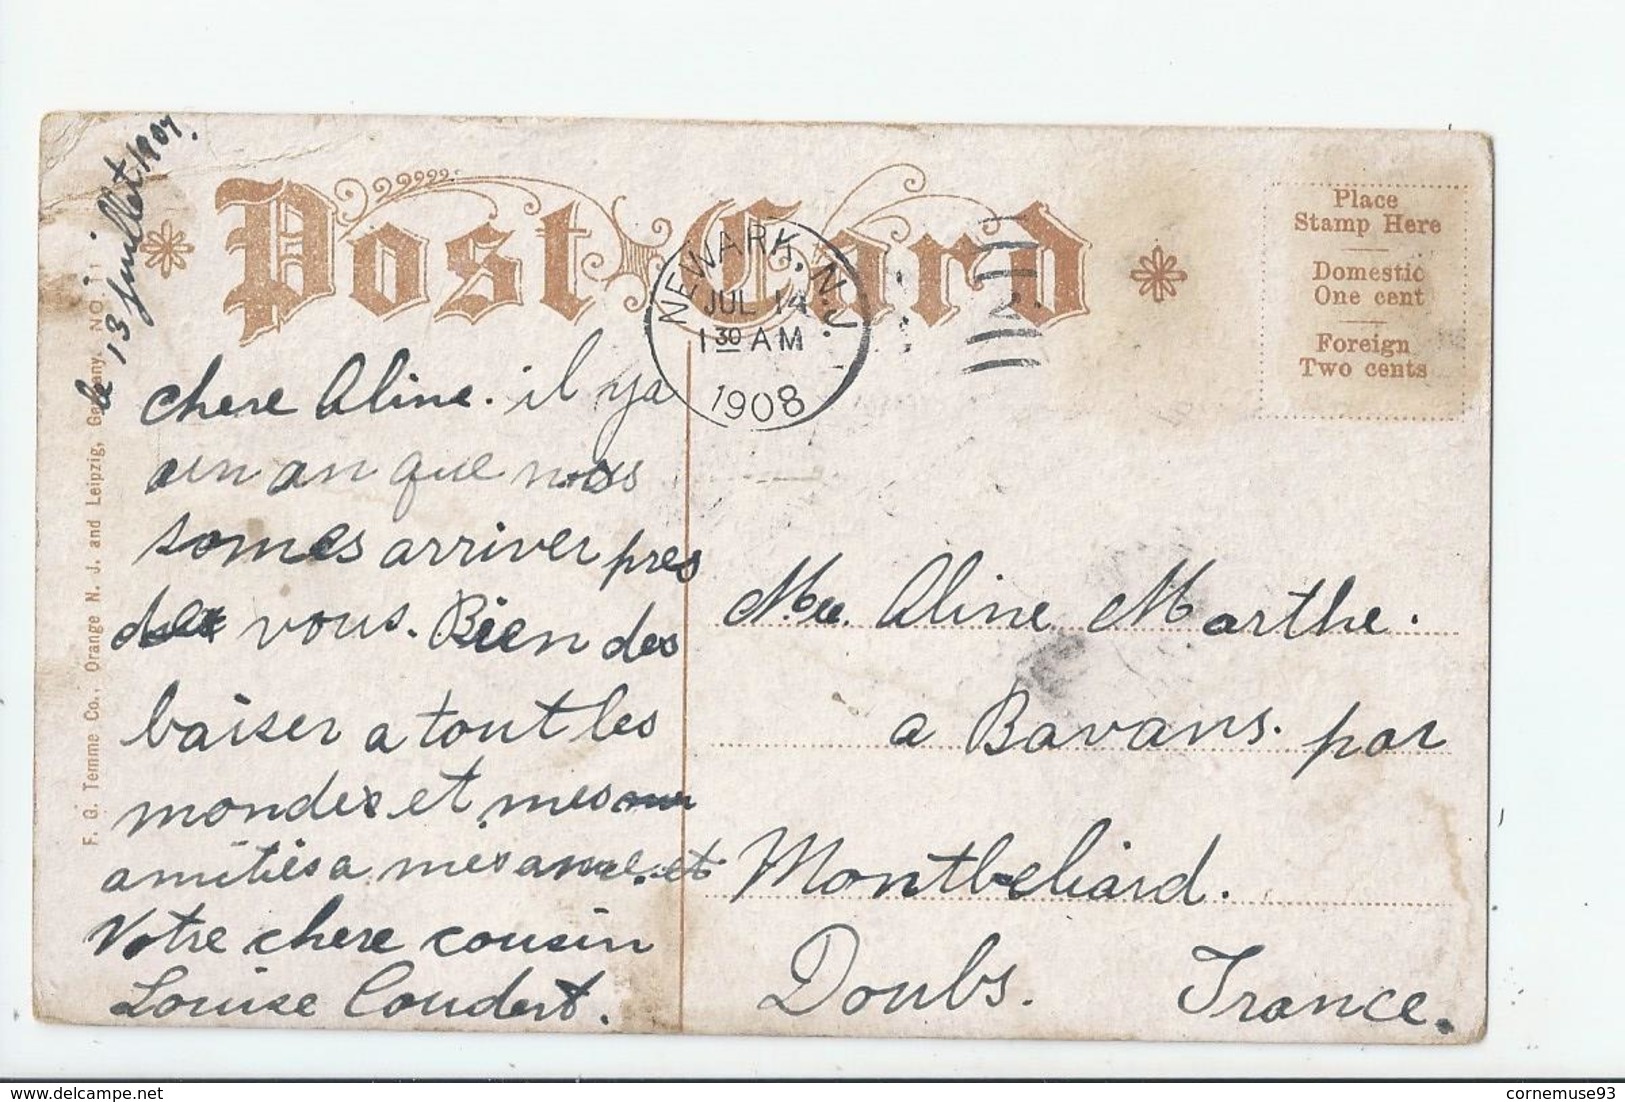 le 13 juillet 1907.
Post Card
Place
Stamp Here
Domestic
One cent
Foreign
Two cents
NEWARK, N.J.
JUL 14
1 30 AM
1908
F. G. Temme Co., Orange N. J. and Leipzig, Germany. NO. 11
chere Aline. il ya
un an que nous
somes arriver pres
de vous. Bien des
baiser a tout les
mondes et mes
amitiés a mes et
Votre chere cousin
Louise Coudert.
Mlle. Aline Marthe.
a Bavans. par
Montbeliard.
Doubs. France.
cornemuse93